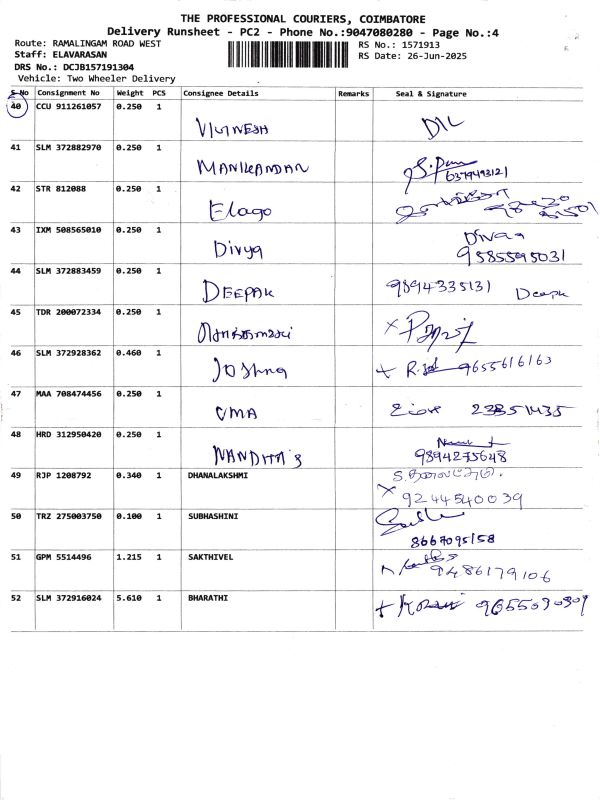 THE PROFESSIONAL COURIERS, COIMBATORE
Delivery Runsheet - PC2 - Phone No.:9047080280 - Page No.:4
Route: RAMALINGAM ROAD WEST
Staff: ELAVARASAN
DRS No.: DCJB157191304
Vehicle: Two Wheeler Delivery
RS No.: 1571913
RS Date: 26-Jun-2025
S.No Consignment No Weight PCS Consignee Details Remarks Seal & Signature
40 CCU 911261057 0.250 1 VIGNESH
41 SLM 372882970 0.250 1 MANIKANDAN
42 STR 812088 0.250 1 Elago
43 IXM 508565010 0.250 1 Divya Divya
9585595031
44 SLM 372883459 0.250 1 DEEPAK 9894335131 Deepk
45 TDR 200072334 0.250 1
46 SLM 372928362 0.460 1 Joshna 9655616163
47 MAA 708474456 0.250 1 UMA
48 HRD 312950420 0.250 1 NANDHA'S
9894275648
49 RJP 1208792 0.340 1 DHANALAKSHMI
9244540039
50 TRZ 275003750 0.100 1 SUBHASHINI
8667095158
51 GPM 5514496 1.215 1 SAKTHIVEL
9486179106
52 SLM 372916024 5.610 1 BHARATHI